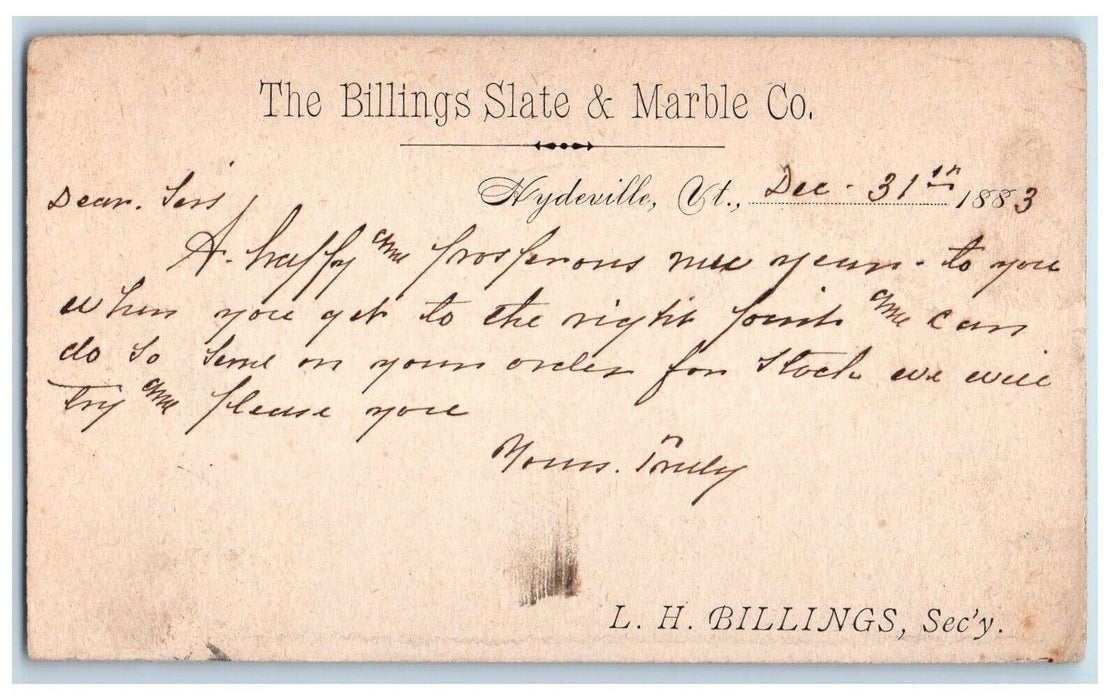 The Billings Slate & Marble Co.
Hydeville, Vt., Dec. 31st 1883
Dear. Sirs
A. happy and prosperous new year. to you
when you get to the right point and can
do so send on your order for Stock we will
try and please you
Yours. Truly
L. H. BILLINGS, Sec'y.